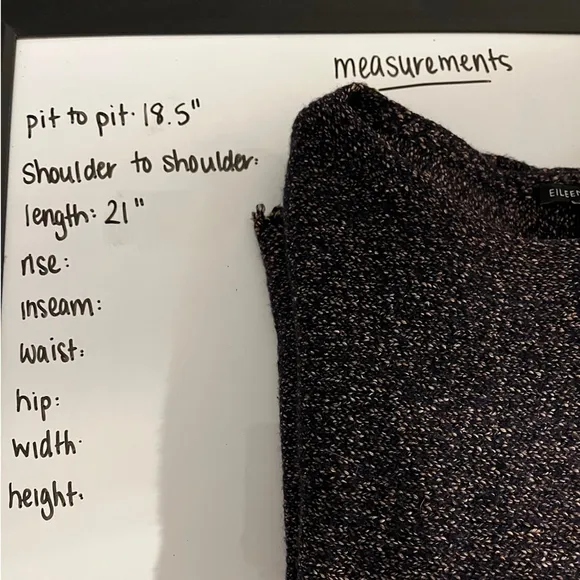 measurements
pit to pit: 18.5"
shoulder to shoulder:
length: 21"
rise:
inseam:
waist:
hip:
width:
height:
EILEEN